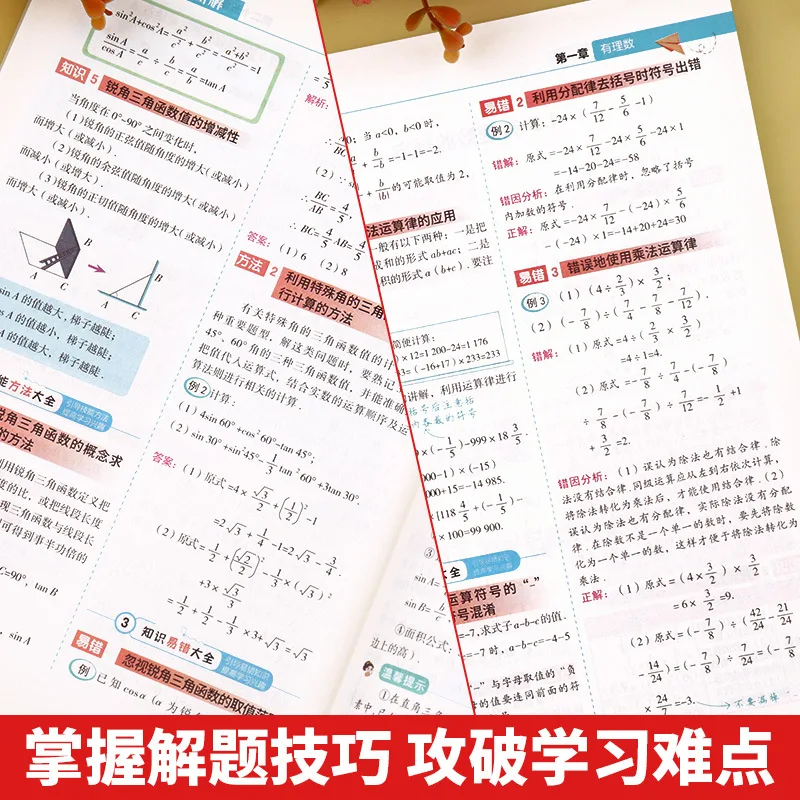 sin²A+cos²A=a²/c²+b²/c²=(a²+b²)/c²=1
sinA/cosA=a/c÷b/c=a/b=tanA
知识 5 锐角三角函数值的增减性
当角度在 0°~90° 之间变化时,
(1)锐角的正弦值随角度的增大(或减小)
而增大(或减小).
(2)锐角的余弦值随角度的增大(或减小)
而减小(或增大).
(3)锐角的正切值随角度的增大(或减小)
而增大(或减小).
B
A C A C
sin A 的值越大, 梯子越陡;
os A 的值越小, 梯子越陡;
A 的值越大, 梯子越陡.
能方法大全
引导技能方法
提高学习兴趣
锐角三角函数的概念求
的方法
利用锐角三角函数定义把
度的比, 或把线段长度
现三角函数与线段长
可得到事半功倍的
C=90°, tan B
, sin A
解析:
∴ BC/AB=4/5
∴ BC=4/5 AB=4/5
答案:(1)6 (2)8
方法 2 利用特殊角的三角
行计算的方法
有关特殊角的三角函数值的计
种重要题型, 解这类问题时, 要熟记
45°, 60° 角的三种三角函数值, 并能准确
把值代入运算式, 结合实数的运算顺序及运
算法则进行相关的计算.
例2 计算:
(1)4sin60°+cos²60°-tan45°;
(2)sin30°+sin²45°-1/3 tan²60°+3tan30°.
答案:(1)原式=4×√3/2+(1/2)²-1
=2√3+1/4-1=2√3-3/4.
(2)原式=1/2+(√2/2)²-1/3×(√3)²
+3×√3/3
=1/2+1/2-1/3×3+√3=√3
3 知识易错大全
引导易错知识
提高学习兴趣
易错 忽视锐角三角函数的取值范
例 已知cosα(α为锐角
sinA=
sinB=b/c
④面积公式:
边上的高).
温馨提示
①在直角三角
第一章 有理数
0; 当 a<0, b<0 时,
+b/-b=-1-1=-2.
+b/|b| 的可能取值为 2,
法运算律的应用
般有以下两种: 一是把
成和的形式 ab+ac; 二是
积的形式 a(b+c). 要注
简便计算:
)×12=1 200-24=1 176
33=(-16+17)×233=233
讲解, 利用运算律进行
×(-1/5)-999×18 3/5
000-1)×(-15)
000+15=-14 985.
[118 4/5+(-1/5)-
×100=99 900.
大全
运算符号的“-”
号混淆
=-7, 求式子 a-b-c 的值.
=-7 时, a-b-c=-4-5
-”与字母取值的“负
的值要连同前面的符
易错 2 利用分配律去括号时符号出错
例2 计算: -24×(7/12-5/6-1)
错解: 原式=-24×7/12-24×5/6-24×1
=-14-20-24=-58
错因分析: 在利用分配律时, 忽略了括号
内加数的符号.
正解: 原式=-24×7/12-(-24)×5/6
-(-24)×1=-14+20+24=30
易错 3 错误地使用乘法运算律
例3 (1)(4÷2/3)×3/2;
(2)(-7/8)÷(7/4-7/8-7/12).
错解: (1)原式=4÷(2/3×3/2)
=4÷1=4.
(2)原式=-7/8÷7/4-(-7/8)
÷7/8-(-7/8)÷7/12=-1/2+1
+3/2=2.
错因分析: (1)误认为除法也有结合律. 除
法没有结合律. 同级运算应从左到右依次计算,
将除法转化为乘法后, 才能使用结合律. (2)
误认为除法也有分配律, 实际除法没有分配
律. 在除数不是一个单一的数时, 要先将除数
化为一个单一的数, 这样才便于将除法转化为
乘法.
正解: (1)原式=(4×3/2)×3/2
=6×3/2=9.
(2)原式=(-7/8)÷(42/24-21/24
-14/24)=(-7/8)÷7/24=(-7/8)
×24/7=-3.
掌握解题技巧 攻破学习难点